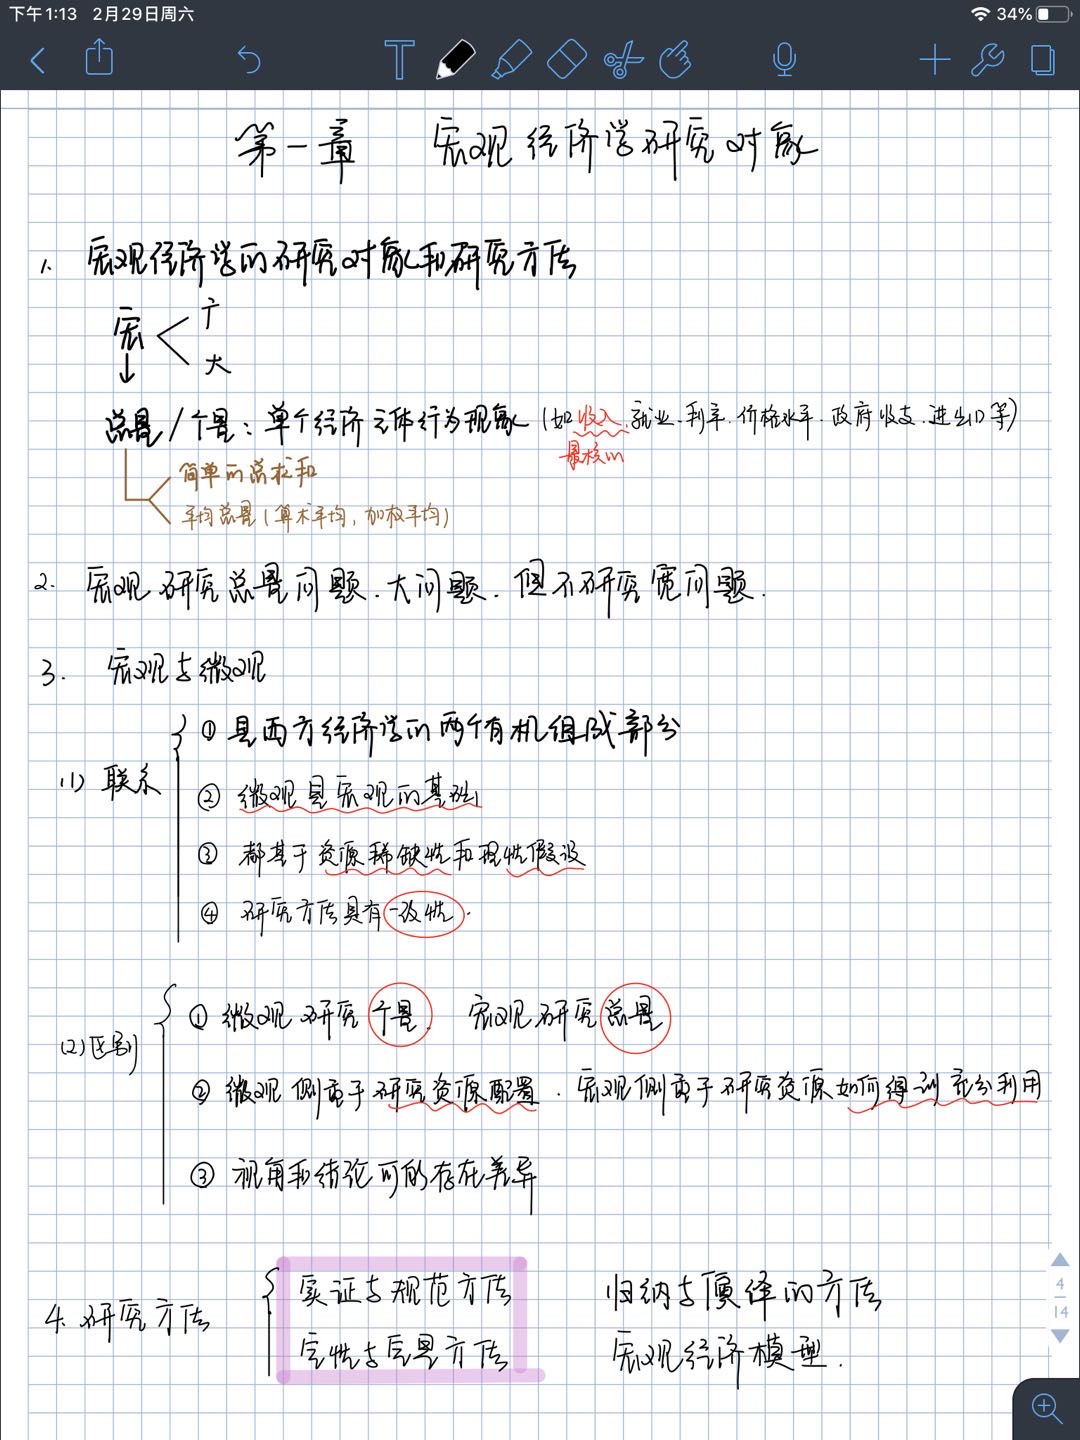 下午1:13 2月29日周六
34%
第一章 宏观经济学研究对象
1. 宏观经济学的研究对象和研究方法
宏
广
大
总量/个量：单个经济主体行为现象（如收入、就业、利率、价格水平、政府收支、进出口等）
最核心
简单的总求和
平均总量（算术平均，加权平均）
2. 宏观研究总量问题、大问题、但不研究宽问题.
3. 宏观与微观
(1) 联系
① 是西方经济学的两个有机组成部分
② 微观是宏观的基础
③ 都基于资源稀缺性和理性假设
④ 研究方法具有一致性.
(2) 区别
① 微观研究个量. 宏观研究总量
② 微观侧重于研究资源配置. 宏观侧重于研究资源如何得到充分利用
③ 视角和结论可能存在差异
4. 研究方法
实证与规范方法 归纳与演绎的方法
定性与定量方法 宏观经济模型.
4
14